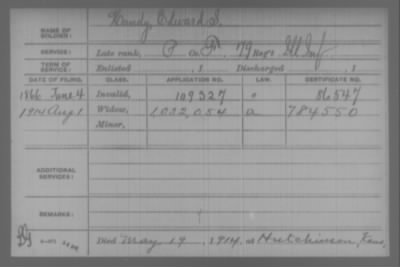 NAME OF SOLDIER: Handy Edward S.
SERVICE: Late rank, P Co. 79 Reg't Ill Inf
TERM OF SERVICE: Enlisted , 1 Discharged , 1
DATE OF FILING. CLASS. APPLICATION NO. LAW. CERTIFICATE NO.
1866 June 4 Invalid, 109327 " 86547
1914 Aug 1 Widow, 1032,054 a 784550
Minor,
ADDITIONAL SERVICES:
REMARKS:
Died May 19, 1914, at Hutchinson, Kans.